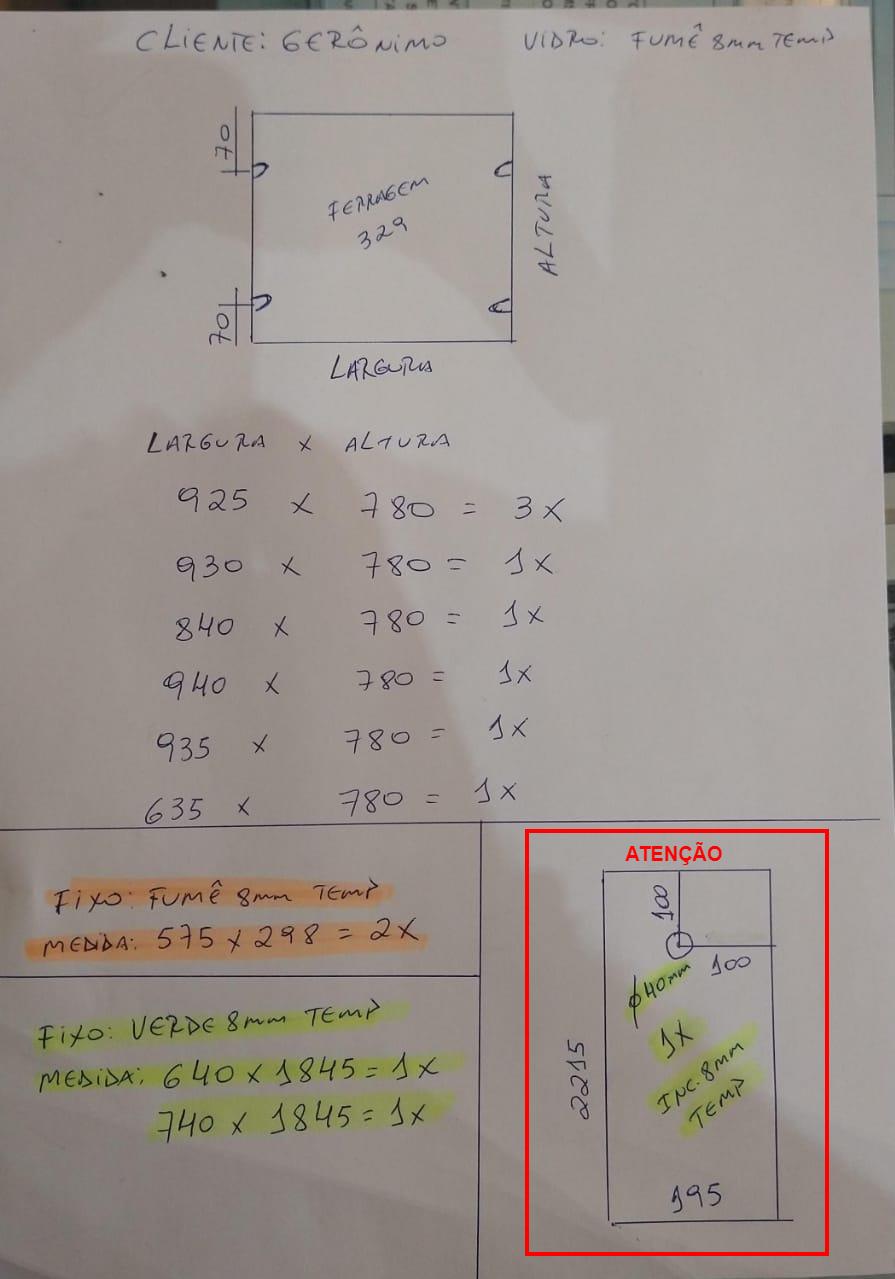 CLIENTE: GERÔNIMO VIDRO: FUMÊ 8mm TEMP
70
FERRAGEM
329
ALTURA
70
LARGURA
LARGURA X ALTURA
925 X 780 = 3X
930 X 780 = 1X
840 X 780 = 1X
940 X 780 = 1X
935 X 780 = 1X
635 X 780 = 1X
FIXO: FUMÊ 8mm TEMP
MEDIDA: 575 X 298 = 2X
FIXO: VERDE 8mm TEMP
MEDIDA: 640 X 1845 = 1X
740 X 1845 = 1X
ATENÇÃO
100
100
ϕ40mm
1X
INC. 8mm
TEMP
2215
195